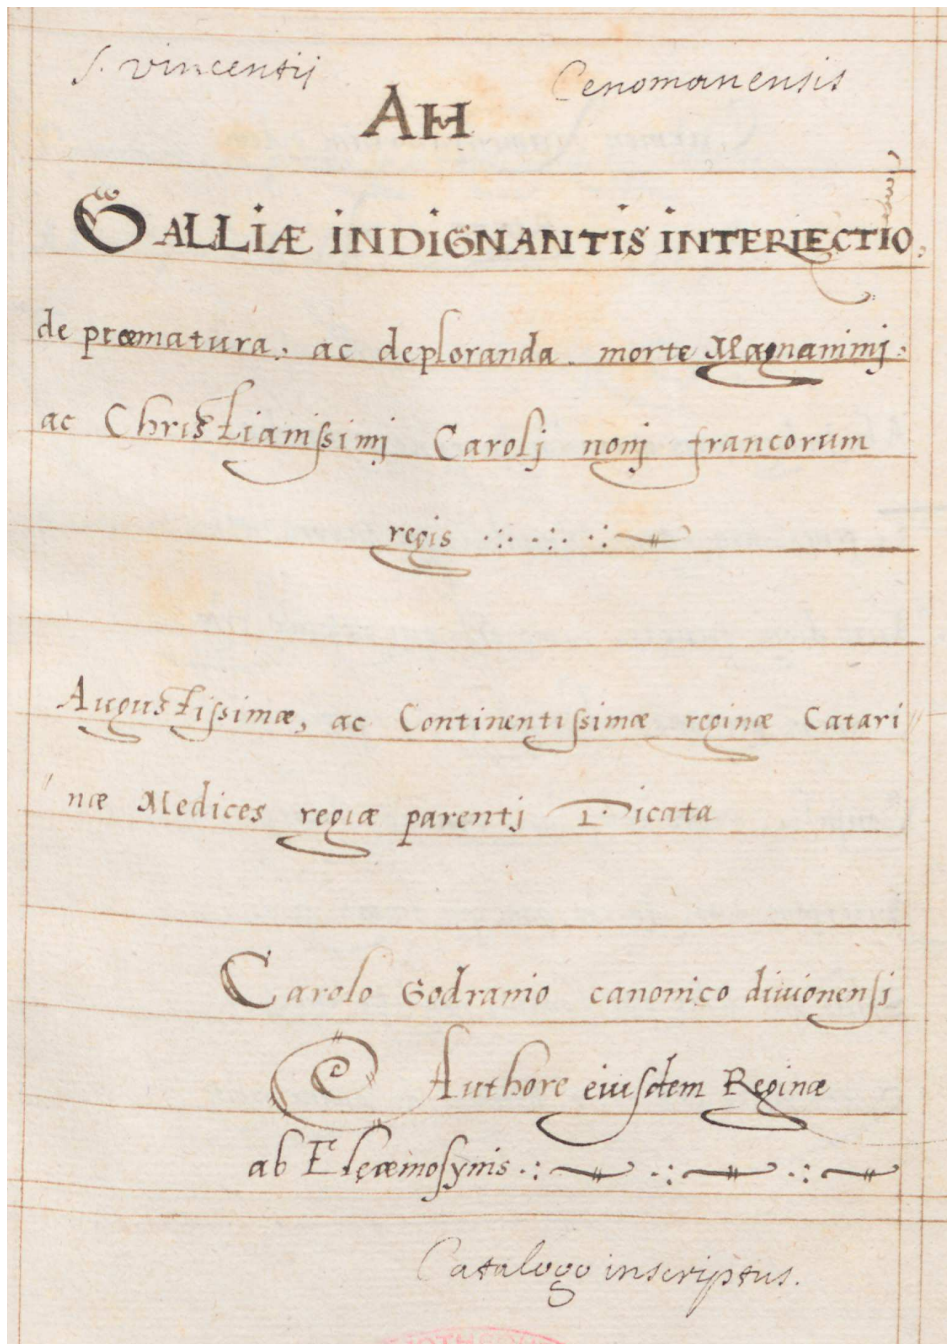 S. vincentij Cenomanensis
AH
GALLIÆ INDIGNANTIS INTERIECTIO,
de præmatura, ac deploranda morte Magnanimj,
ac Christianissimj Carolj nonj francorum
regis
Augustissimæ, ac Continentissimæ reginæ Catari
næ Medices regiæ parentj Dicata
Carolo Godranio canonico diuionensi
Authore eiusdem Reginæ
ab Eleæmosynis
Catalogo inscriptus.